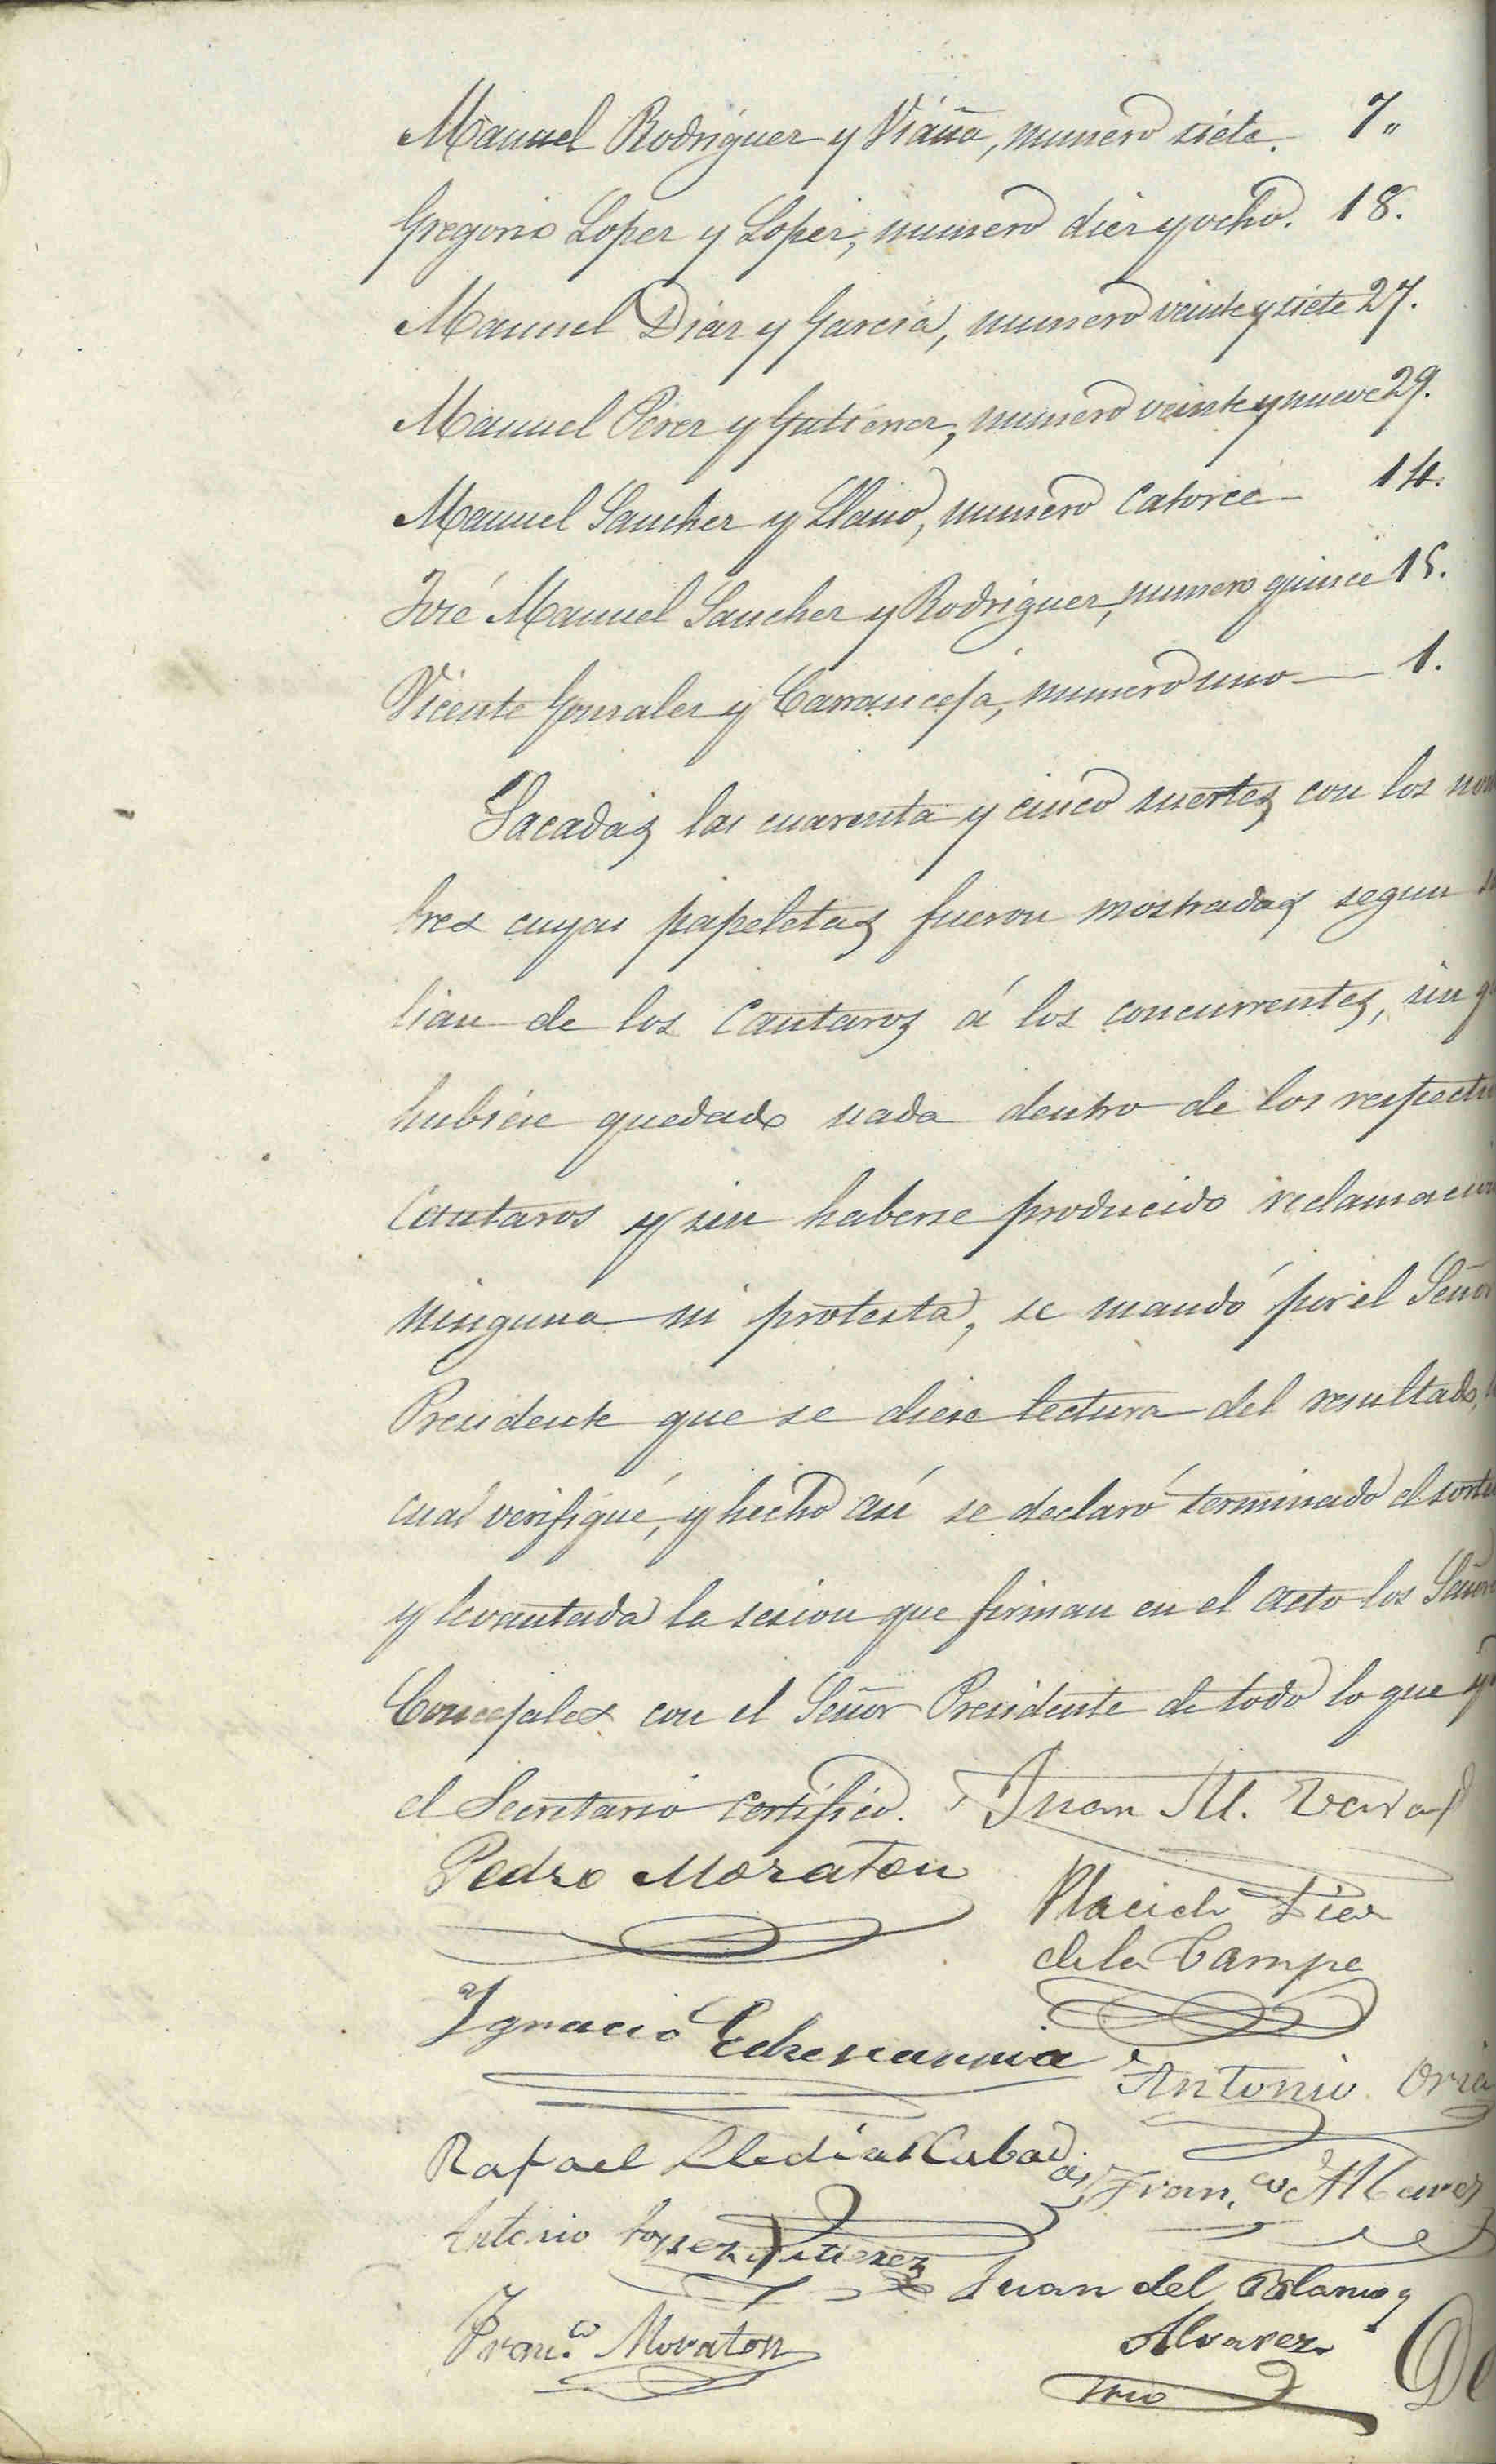 Manuel Rodriguez y Viaña, numero siete. 7"
Gregorio Lopez y Lopez, numero diez y ocho. 18.
Manuel Diaz y Garcia, numero veinte y siete 27.
Manuel Pérez y Gutierrez, numero veinte y nueve 29.
Manuel Sanchez y Llano, numero Catorce 14.
José Manuel Sanchez y Rodriguez, numero quince 15.
Vicente Gonzalez y Carranceja, numero uno 1.
Sacadas las cuarenta y cinco suertes con los nom
bres cuyas papeletas fueron mostradas segun sa
lian de los Cantaros á los concurrentes, sin q
hubiese quedado nada dentro de los respecti
Cantaros y sin haberse producido reclamacion
ninguna ni protesta, se mandó por el Señor
Presidente que se diese lectura del resultado,
cual verifiqué, y hecho así se declaró terminado el sorte
y levantada la sesion que firman en el acto los Señore
Concejales con el Señor Presidente de todo lo que y
el Secretario certifico. Juan M.
Pedro Moraton
Placido Diaz
de la Campa
Ygnacio Echevarria
Antonio Oria
Rafael Cabadas
Fran.co Alvarez
Antonio Lopez Gutierrez
Juan del Blanco y
Fran.co Moraton
Alvarez
Srio
De